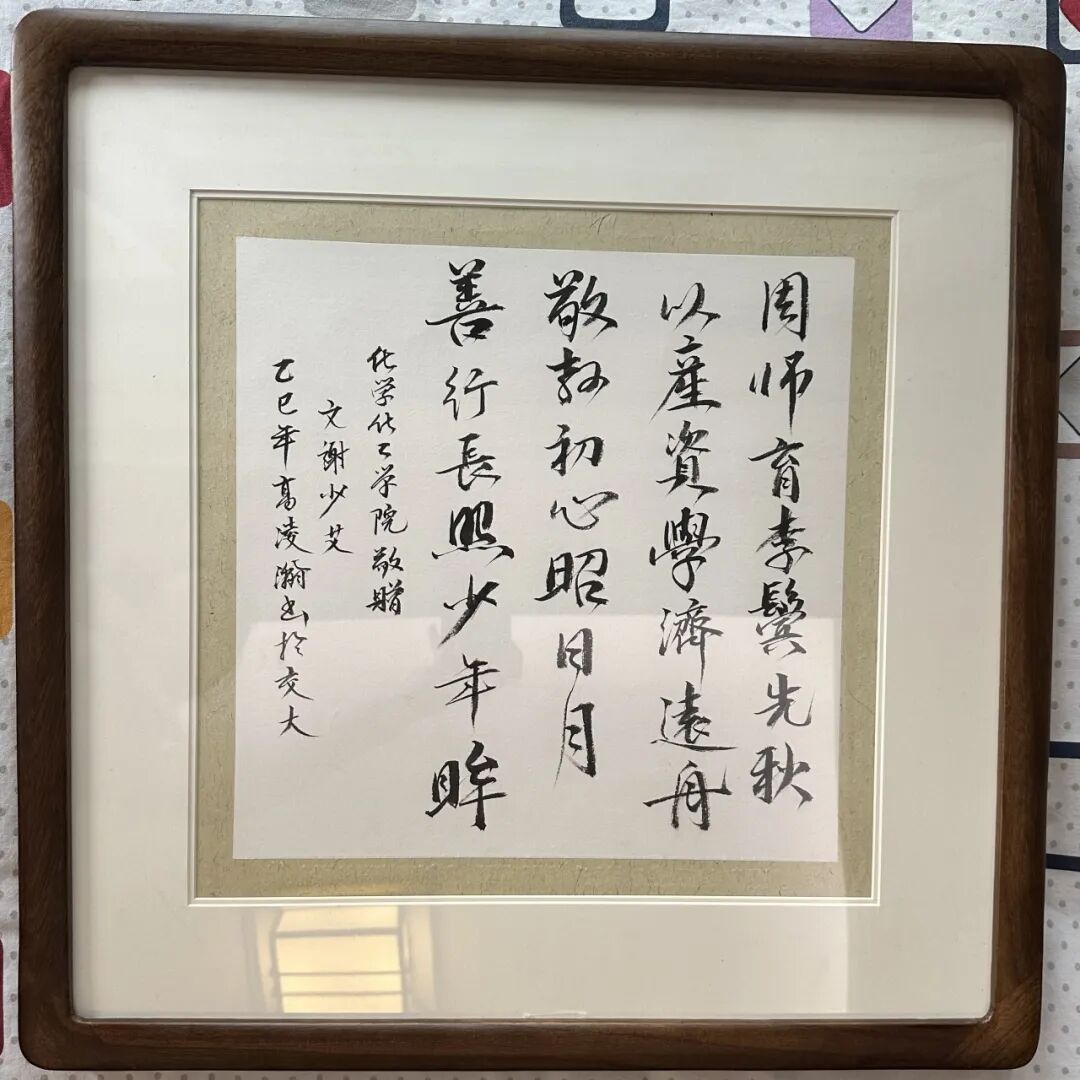 周师育李鬓先秋
以產資學濟遠舟
敬教初心昭日月
善行長照少年眸
化学化工学院敬贈
文謝少艾
乙巳年高凌瀚书於交大